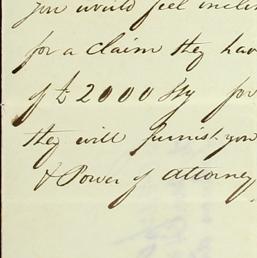 you would feel incline
for a claim they hav
of £2000 Stg for
they will furnish you
& Power of attorney